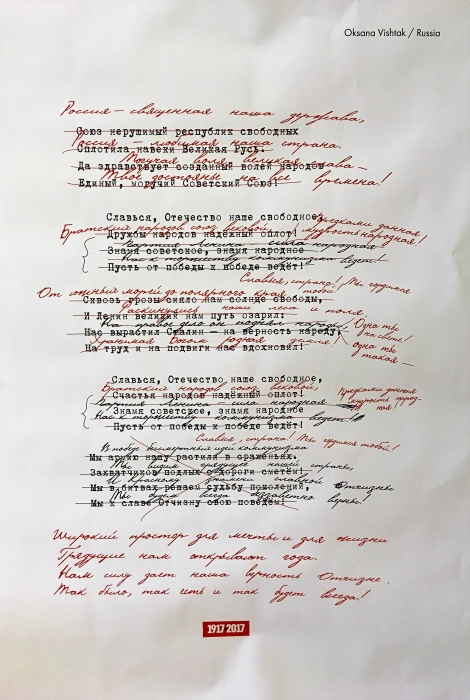 Oksana Vishtak / Russia
Россия – священная наша держава,
Союз нерушимый республик свободных
Россия – любимая наша страна.
Сплотила навеки Великая Русь.
Могучая воля, великая слава –
Да здравствует созданный волей народов
Твоё достоянье на все времена!
Единый, могучий Советский Союз!
Славься, Отечество наше свободное,
Братский народов союз вековой,
Предками данная
мудрость народная!
Дружбы народов надёжный оплот!
Партия Ленина – сила народная
Знамя советское, знамя народное
Нас к торжеству коммунизма ведёт!
Пусть от победы к победе ведёт!
Славься, страна! Мы гордимся
тобой!
От южных морей до полярного края
Сквозь грозы сияло нам солнце свободы,
Раскинулись наши леса и поля.
И Ленин великий нам путь озарил:
На правое дело он поднял народы,
Одна ты
на свете!
Нас вырастил Сталин – на верность народу,
Хранимая Богом родная земля!
Одна ты
такая –
На труд и на подвиги нас вдохновил!
Славься, Отечество наше свободное,
Братских народов союз вековой,
Предками данная
мудрость народ-
ная!
Счастья народов надёжный оплот!
Партия Ленина – сила народная
Знамя советское, знамя народное
Нас к торжеству коммунизма ведёт!
Пусть от победы к победе ведёт!
Славься, страна! Мы гордимся тобой!
В победе бессмертных идей коммунизма
Мы армию нашу растили в сраженьях.
Мы видим грядущее нашей страны,
Захватчиков подлых с дороги сметём!
И Красному знамени славной Отчизны
Мы в битвах решаем судьбу поколений,
Мы будем всегда беззаветно верны!
Мы к славе Отчизну свою поведём!
Широкий простор для мечты и для жизни
Грядущие нам открывают года.
Нам силу даёт наша верность Отчизне.
Так было, так есть и так будет всегда!
1917 2017